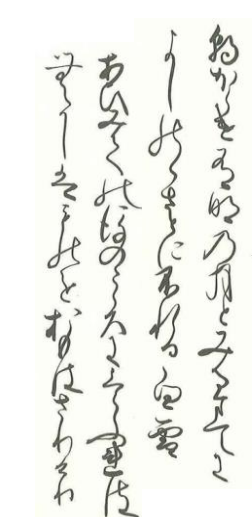 朝ほらけ有明乃月とみるまてに
よしのゝさとに不れる白雪
あひみての後のこゝろにくらふれは
むかしはものをおもはさりけり